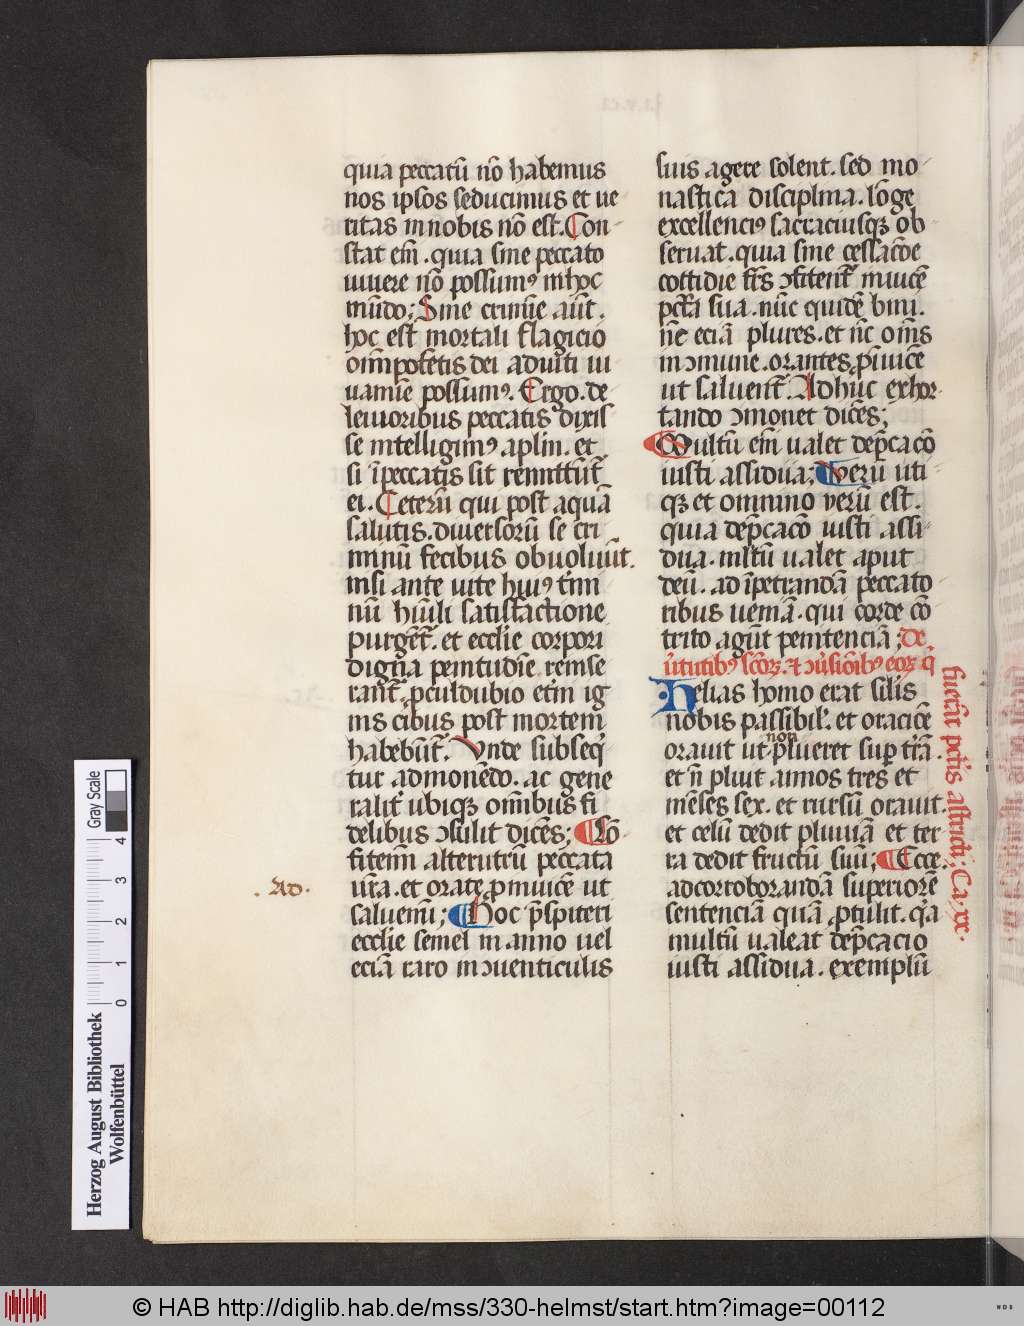 quia peccatū nō habemus
nos ipsos seducimus et ue
ritas in nobis nō est. Con
stat em̄. quia sine peccato
uiuere nō possumꝰ in hoc
mūdo; Sine crimīe aūt.
hoc est mortali flagicio
om̄ipotētis dei adiuti iu
uamīe possumꝰ. Ergo. de
leuioribus peccatis dixis
se intelligimꝰ aplm̄. et
si ī peccatis sit remittūt᷑
ei. Ceterū qui post aquā
salutis. diuersorū se cri
minū fecibus obuoluūt.
nisi ante uite huiꝰ t̄mi
nū hūili satisfactione
purgēt᷑. et eccl̄ie corpori
digna penitudīe reīnse
rant᷑. ꝓculdubio et̄ni ig
nis cibus post mortem
habebūt᷑. Vnde subseq̄
tur admonēdo. ac gene
ralit᷑ ubiqꝫ om̄ibus fi
delibus ↄsulit dicēs; Cō
fitem̄i alterutrū peccata
ur̄a. et orate ꝓ inuicē ut
saluem̄i; Hoc p̄spiteri
eccl̄ie semel in anno uel
eciā raro in ↄuenticulis
. Ad .
suis agere solent. sed mo
nastica disciplina. lōge
excellenciꝰ sacraciusqꝫ ob
seruat. quia sine cessacōe
cottidie fr̄s ↄfitent᷑ inuicē
pctā sua. nūc quidē bini.
n̄c eciā plures. et n̄c om̄s
in ↄmune. orantes ꝓ īuicē
ut saluent᷑. Adhuc exhor
tando ↄmonet dicēs;
Multū em̄ ualet dep̄cacō
iusti assidua; Verū uti
qꝫ et omnino verū est.
quia dep̄cacō iusti assi
dua. mltū ualet aput
deū. ad īpetrandā peccato
ribus ueniā. qui corde cō
trito agūt penitenciā; de
ūtutibꝰ sc̄orꝫ. et ↄūsiōibꝰ eorꝫ q̄
fuerāt pctīs astricti; Ca. xx.
Helias homo erat silis
nobis passibil᷑. et oracōe
orauit ut non plueret suꝑ tr̄ā.
et n̄ pluit annos tres et
mēses sex. et rursū orauit.
et celū dedit pluuiā et ter
ra dedit fructū suū; Ecce.
ad corroborandā superiorē
sentenciā quā ꝓtulit. q̄a
multū ualeat dep̄cacio
iusti assidua. exemplū
Gray Scale
4
3
2
1
0
Herzog August Bibliothek
Wolfenbüttel
© HAB http://diglib.hab.de/mss/330-helmst/start.htm?image=00112